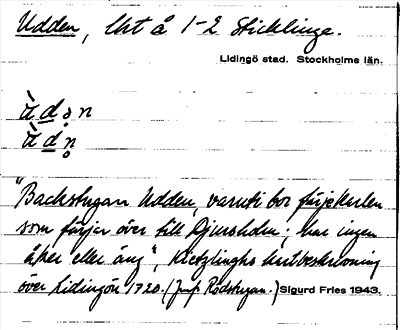 Udden, lht å 1-2 Sticklinge.
Lidingö stad. Stockholms län.
ù d ə n
ù d n̥
"Backstugan Udden, varuti bor färjekarlen
som färjar över till Djursholm; har ingen
åker eller äng", Kietzlinghs kartbeskrivning
över Lidingön 1720. (Jmf Rödstugan.) Sigurd Fries 1943.